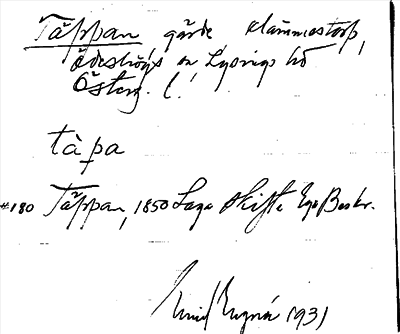 Täppan gärde Hämmestorp,
Ödeshögs sn Lysings hd
Österg. l.
tàpa
#180 Täppan, 1850 Laga skifte Ego Beskr.
1931